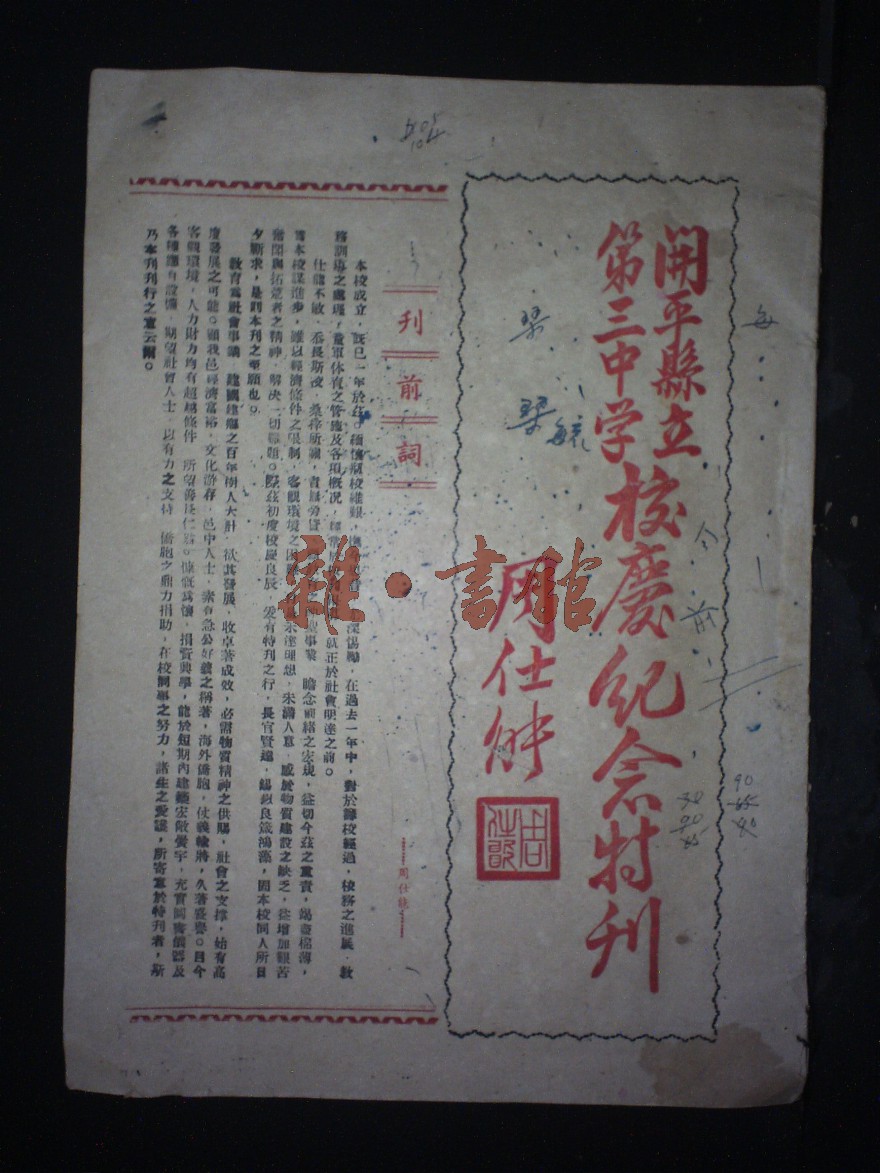 開平縣立
第三中学
校慶紀念特刊
周仕能
周仕能
刊前詞
周仕能
本校成立，既已一年於茲。緬懷創校維艱，深惕勵，在過去一年中，對於籌校經過，校務之進展，教
務訓導之處理，童軍体育之管施及各項概况，就正於社會明達之前。
仕能不敏，忝長斯校，桑梓所關，責無旁貸，事業，瞻念前緒之宏規，益切今茲之重責，竭盡棉薄，
爲本校謀進步，雖以經濟條件之限制，客觀環境之困難，未達理想，未滿人意，感於物質建設之缺乏，益增加艱苦
奮鬥與拓荒者之精神，解決一切難題。際茲初度校慶良辰，爰有特刊之行，長官賢達，錫致良箴鴻藻，固本校同人所日
夕斯求，是則本刊之至願也。
教育爲社會事業，建國建鄉之百年樹人大計，欲其發展，收卓著成效，必需物質精神之供賜，社會之支撐，始有高
度發展之可能。顧我邑經濟富裕，文化潛存，邑中人士，素有急公好義之稱著，海外僑胞，仗義輸將，久著盛譽。目今
客觀環境，人力財力均有超越條件，所望善長仁翁，慷慨爲懷，捐資興學，能於短期內建築宏敞黌宇，充實圖書儀器及
各種應有設備，期望社會人士，以有力之支持，僑胞之鼎力捐助，在校同事之努力，諸生之愛護，所寄意於特刊者，斯
乃本刊刊行之意云爾。
雜·書館
每
今
前
90